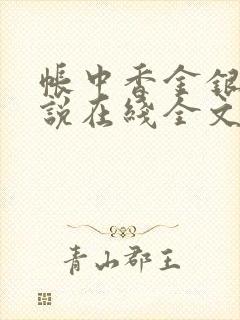 帳中香金銀
說在綫全文
青山郡王